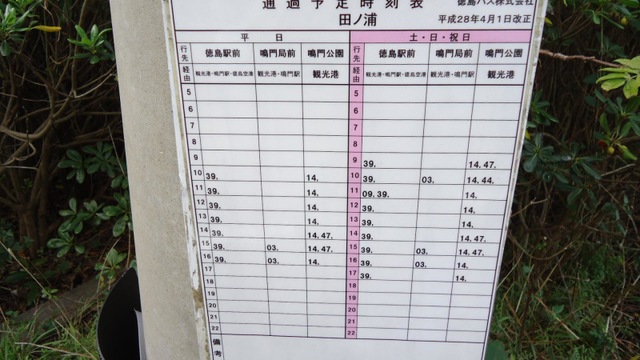 通過予定時刻表 徳島バス株式会社
田ノ浦 平成28年4月1日改正
平日 土・日・祝日
行先 徳島駅前 鳴門局前 鳴門公園 行先 徳島駅前 鳴門局前 鳴門公園
経由 観光港・鳴門駅・徳島空港 観光港・鳴門駅 観光港 経由 観光港・鳴門駅・徳島空港 観光港・鳴門駅 観光港
5 5
6 6
7 7
8 8
9 9 39. 14. 47.
10 39. 14. 10 39. 03. 14. 44.
11 39. 14. 11 09. 39. 14.
12 39. 14. 12 39. 14.
13 39. 14. 13 39. 14.
14 39. 14. 47. 14 39. 14. 47.
15 39. 03. 14. 47. 15 39. 03. 14. 47.
16 39. 03. 14. 16 39. 03. 14.
17 17 39. 14.
18 18
19 19
20 20
21 21
22 22
備考